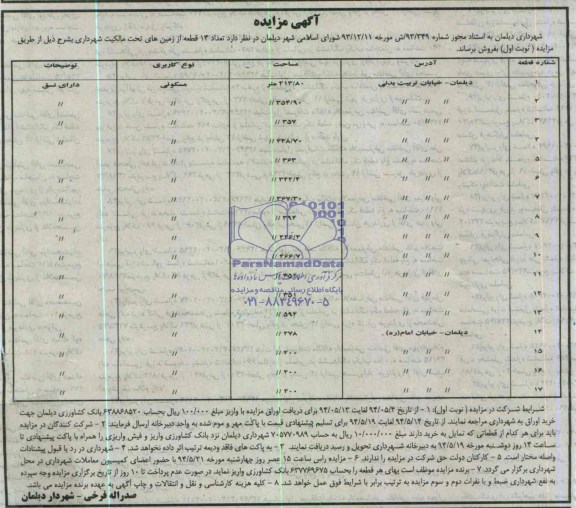 آگهی مزایده
شهرداری دیلمان به استناد مجوز شماره ۹۳/۳۴۹/ش مورخه ۹۳/۱۲/۱۱ شورای اسلامی شهر دیلمان در نظر دارد تعداد ۱۳ قطعه از زمین های تحت مالکیت شهرداری بشرح ذیل از طریق
مزایده ( نوبت اول) بفروش برساند.
شماره قطعه آدرس مساحت نوع کاربری توضیحات
۱ دیلمان- خیابان تربیت بدنی ۳۱۳/۸۰ متر مسکونی دارای نسق
۲ // // // ۳۵۴/۹۰ // // //
۳ // // // ۳۵۷ // // //
۴ // // // ۳۳۸/۷۰ // // //
۵ // // // ۳۶۳ // // //
۶ // // // ۳۳۲/۴ // // //
۷ // // // ۳۶۷/۳۰ // // //
۸ // // // ۳۹۴ // // //
۹ // // // // // //
۱۰ // // // ۳۶۶/۷ // // //
۱۱ // // // // // //
۱۲ // // // ۳۵۱ // // //
۱۳ // // // ۵۹۲ // // //
۱۴ دیلمان- خیابان امام(ره) ۲۷۸ // // //
۱۵ // // // ۲۰۰ // // //
۱۶ // // // ۲۰۰ // // //
۱۷ // // // ۲۰۰ // // //
۰۱۰۱۰۱
ParsNamadData
پایگاه اطلاع رسانی مناقصه و مزایده
۰۲۱-۸۸۳۴۹۶۷۰-۵
شرایط شرکت در مزایده ( نوبت اول): ۱ - از تاریخ ۹۴/۰۵/۴ لغایت ۹۴/۰۵/۱۳ برای دریافت اوراق مزایده با واریز مبلغ ۱۰۰/۰۰۰ ریال بحساب ۶۳۸۸۶۸۵۲۰ بانک کشاورزی دیلمان جهت
خرید اوراق به شهرداری مراجعه نمایند. از تاریخ ۹۴/۵/۱۴ لغایت ۹۴/۵/۱۹ برای تسلیم پیشنهادی قیمت با پاکت مهر و موم شده به واحد دبیرخانه ارسال فرمایند. ۲ - شرکت کنندگان در مزایده
باید برای هر کدام از قطعاتی که تمایل به خرید دارند مبلغ ۱۰/۰۰۰/۰۰۰ ریال به حساب ۷۰۵۷۷۰۹۸۹ شهرداری دیلمان نزد بانک کشاورزی واریز و فیش واریزی را همراه با پاکت پیشنهادی تا
ساعت ۱۴ روز دوشنبه مورخه ۹۴/۵/۱۹ به دبیرخانه شهرداری تحویل و رسید دریافت نمایند. ۳ - به پاکت های فاقد ودیعه ترتیب اثر داده نخواهد شد. ۴ - شهرداری در رد یا قبول پیشنهادات
واصله مختار است. ۵ - کارکنان دولت حق شرکت در مزایده را ندارند. ۶ - مزایده راس ساعت ۱۵ عصر روز چهارشنبه مورخه ۹۴/۵/۲۱ با حضور اعضای کمیسیون معاملات شهرداری در محل
شهرداری برگزار می گردد. ۷ - برنده مزایده موظف است بهای هر قطعه را بحساب ۶۳۷۷۶۹۶۷۵ بانک کشاورزی واریز نماید. در صورت عدم پرداخت تا ۱۰ روز از تاریخ برگزاری مزایده وجه سپرده
به نفع شهرداری ضبط و با نفرات دوم و سوم مزایده به ترتیب برابر با شرایط فوق عمل خواهد شد. ۸ - کلیه هزینه کارشناسی و نقل و انتقالات و چاپ آگهی به عهده برنده مزایده می باشد.
صدراله فرخی - شهردار دیلمان